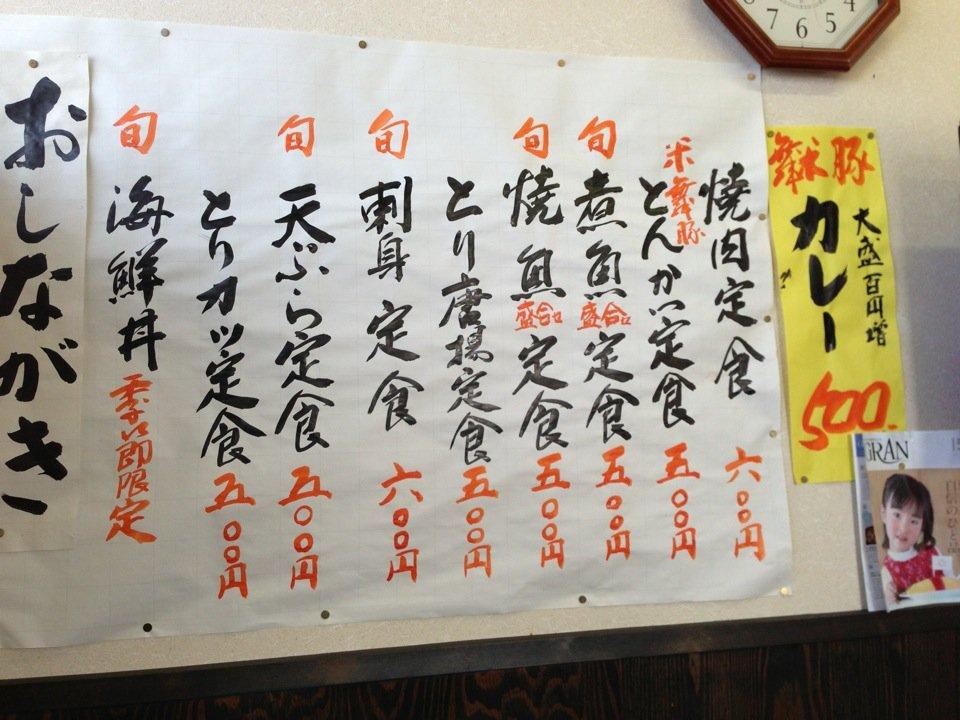 舞米豚
大盛百円増
カレー
500.
焼肉定食 六〇〇円
米舞豚
とんかつ定食 五〇〇円
旬 煮魚盛合定食 五〇〇円
旬 焼魚盛合定食 五〇〇円
とり唐揚定食 五〇〇円
旬 刺身定食 六〇〇円
旬 天ぷら定食 五〇〇円
とりカツ定食 五〇〇円
旬 海鮮丼 季節限定
おしながき
GRAN
5
4
6
7
8